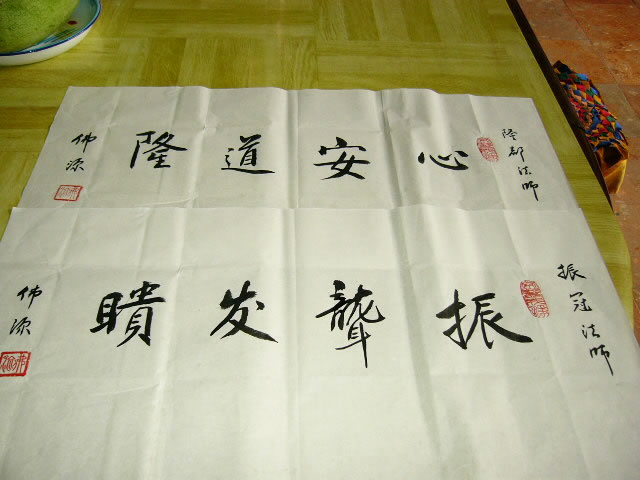 隆郡法师
心安道隆
佛源
振冠法师
振聾发瞶
佛源